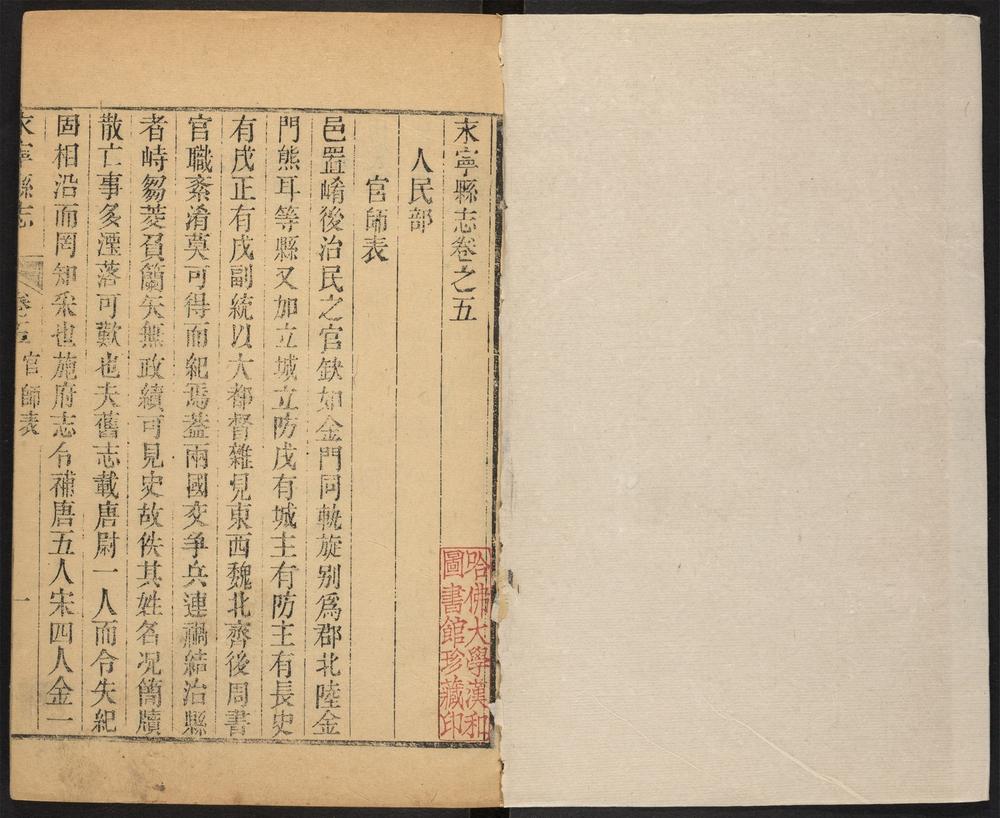 永寧縣志卷之五
人民部
官師表
邑置崤後治民之官缺如金門同軌旋别爲郡北陸金
門熊耳等縣又如立城立防戍有城主有防主有長史
有戍正有戍副統以大都督雜見東西魏北齊後周書
官職紊淆莫可得而紀焉蓋兩國交爭兵連禍結治縣
者峙芻茭負籣矢無政績可見史故佚其姓名况簡牘
散亡事多湮落可歎也夫舊志載唐尉一人而令失紀
固相沿而罔知采也施府志令補唐五人宋四人金一
永寧縣志
卷之五
官師表
一
哈佛大學漢和
圖書館珍藏印